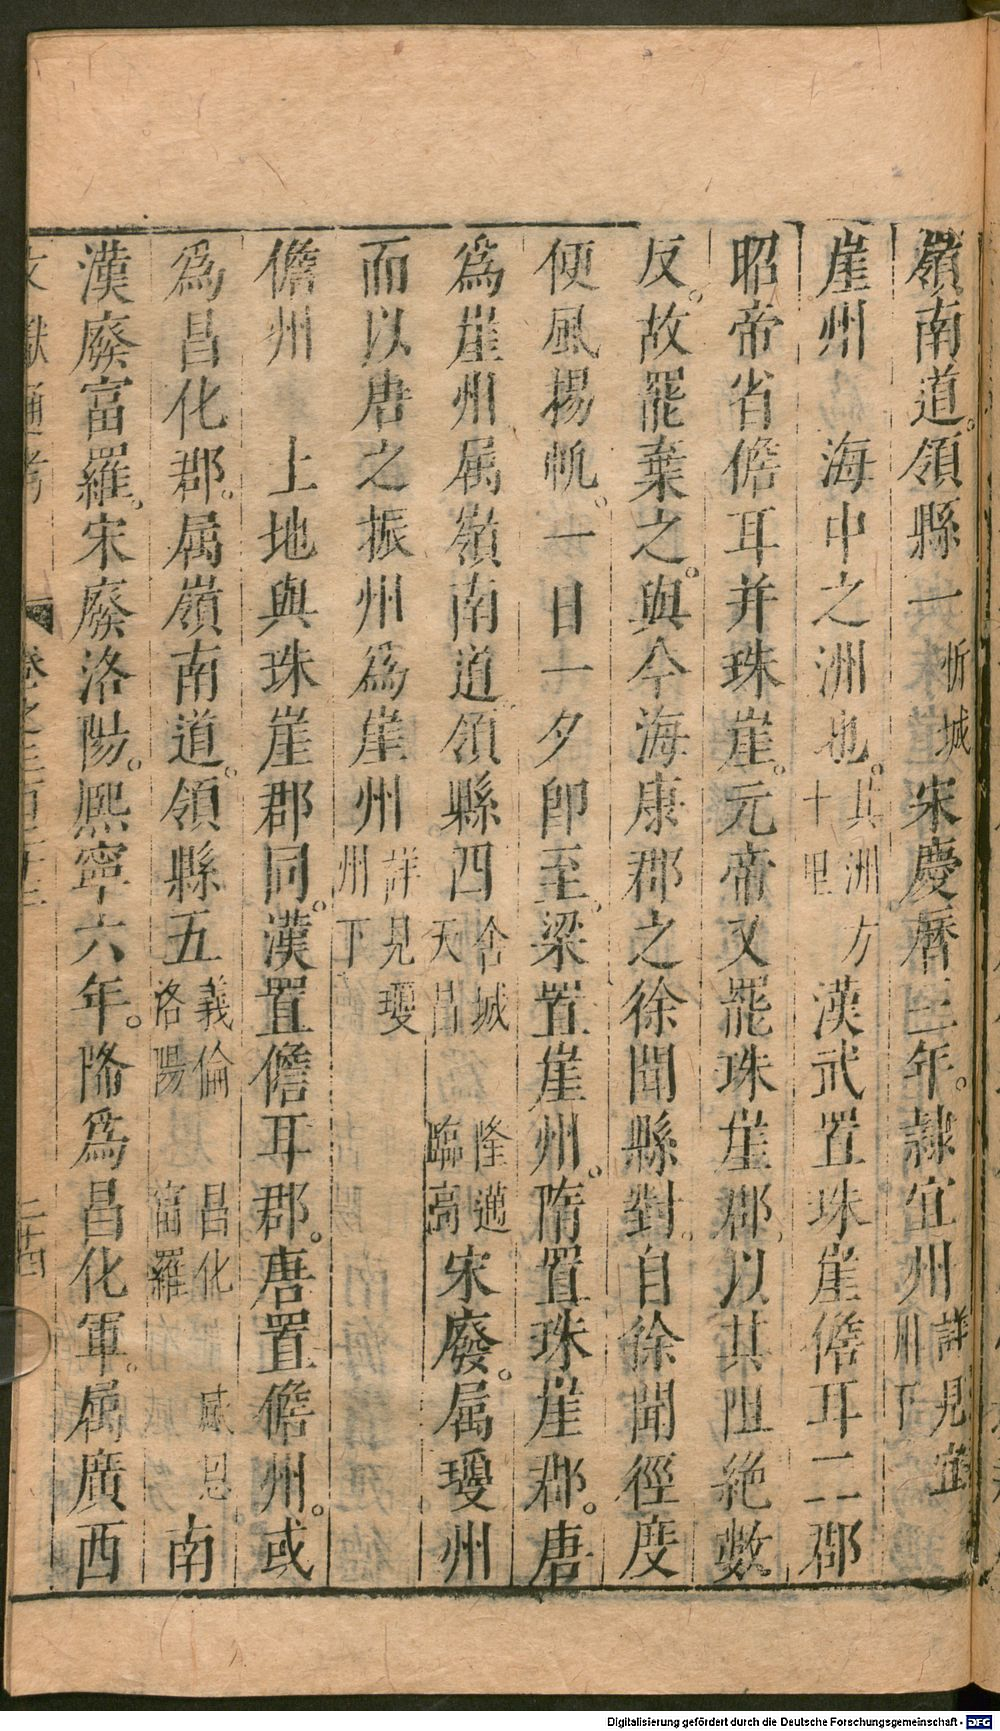 嶺南道。領縣一忻城宋慶曆三年。隷宜州詳見宜州下
崖州　海中之洲也。其洲方十里漢武置珠崖儋耳二郡
昭帝省儋耳并珠崖。元帝又罷珠崖郡。以其阻絶數
反。故罷棄之。與今海康郡之徐聞縣對。自徐聞徑度
便風揚帆。一日一夕即至。梁置崖州。隋置珠崖郡。唐
為崖州属嶺南道領縣四舍城　隆邁天昌　臨高宋廢。属瓊州
而以唐之振州為崖州詳見瓊州下
儋州　土地與珠崖郡同。漢置儋耳郡。唐置儋州。或
為昌化郡。属嶺南道。領縣五義倫　昌化　感恩洛陽　富羅南
漢廢富羅。宋廢洛陽。熙寧六年。降為昌化軍。属廣西
文獻通考　卷之三百二十三　二十四
Digitalisierung gefördert durch die Deutsche Forschungsgemeinschaft - DFG